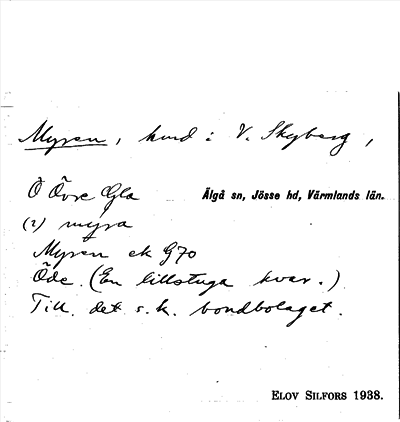 Myren, hmd i V. Skyberg,
Ö Övre Gla Älgå sn, Jösse hd, Värmlands län.
(2) myra
Myren ek G70
Öde. (En lillstuga kvar.)
Till. det s.k. bondbolaget.
ELOV SILFORS 1938.